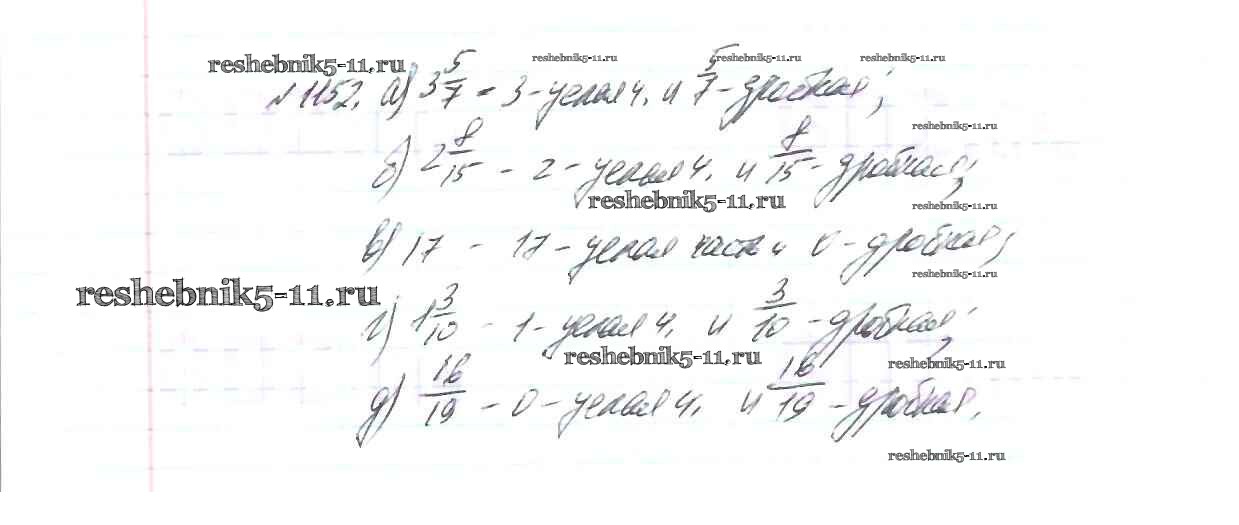 reshebnik5-11.ru reshebnik5-11.ru reshebnik5-11.ru reshebnik5-11.ru
№1152. а) 3 5/7 - 3 - целая ч. и 5/7 - дробная;
reshebnik5-11.ru
б) 2 8/15 - 2 - целая ч. и 8/15 - дробная;
reshebnik5-11.ru reshebnik5-11.ru
в) 17 - 17 - целая часть и 0 - дробная;
reshebnik5-11.ru
reshebnik5-11.ru
г) 1 3/10 - 1 - целая ч. и 3/10 - дробная;
reshebnik5-11.ru reshebnik5-11.ru
д) 16/19 - 0 - целая ч. и 16/19 - дробная.
reshebnik5-11.ru